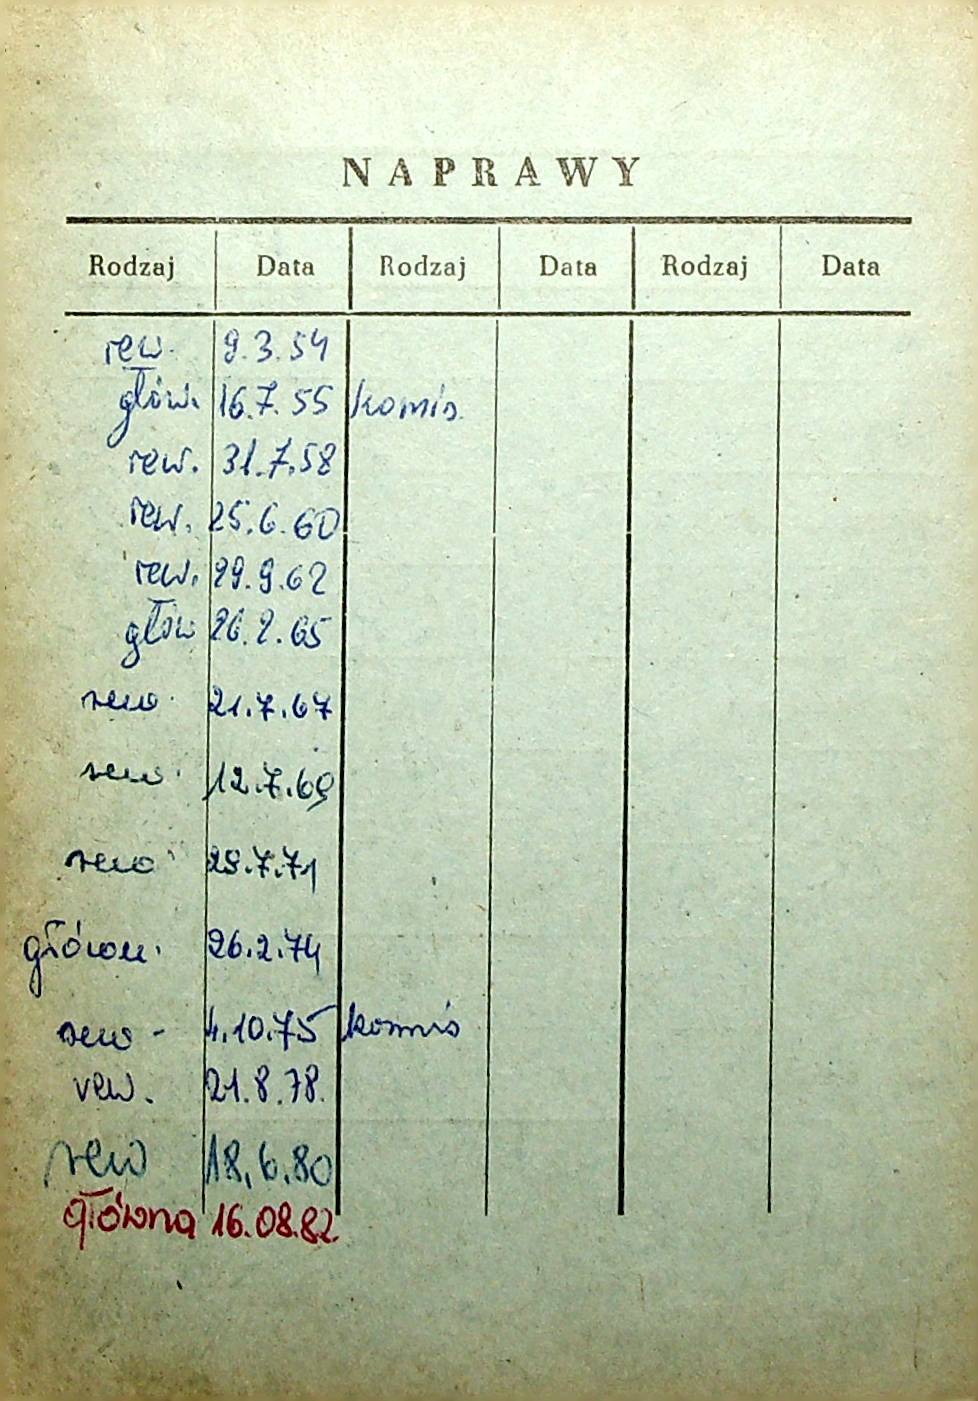 NAPRAWY
Rodzaj Data Rodzaj Data Rodzaj Data
rew. 9.3.54
głów. 16.7.55 komis.
rew. 31.7.58
rew. 25.6.60
rew. 29.9.62
głów 26.2.65
rew. 21.7.67
rew. 12.7.69
rew. 29.7.71
główn. 26.2.74
rew - 4.10.75 komis
rew. 21.8.78.
rew 18.6.80
główna 16.08.82.